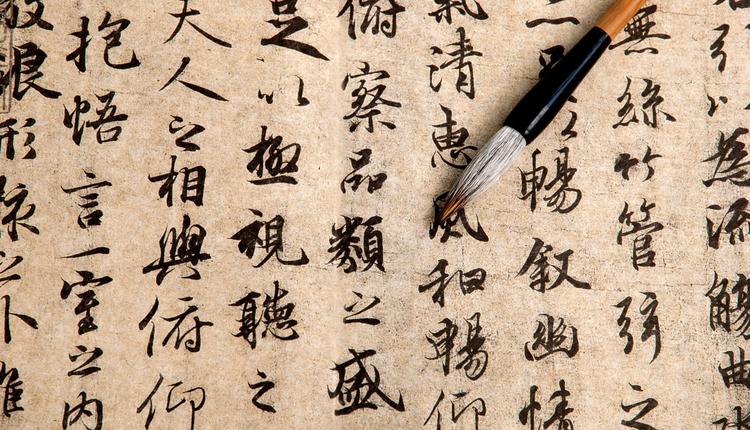 引以為流觴曲
無絲竹管弦之
足以暢叙幽情
氣清惠風和暢仰
俯察品類之盛
足以極視聽之
夫人之相與俯仰
抱悟言一室之內
放浪形骸之外雖